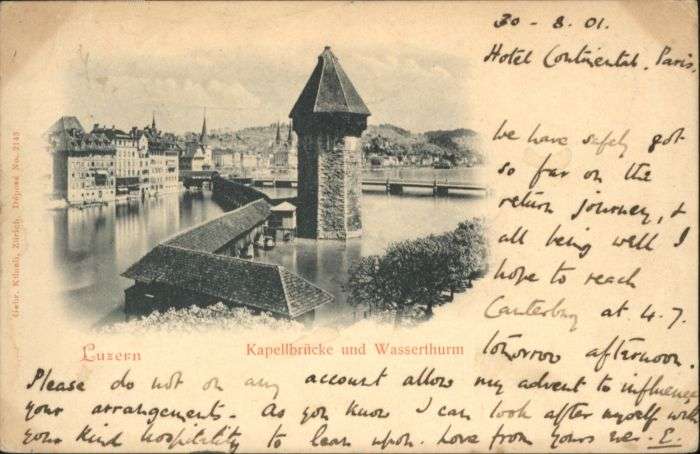 30 - 8.01.
Hotel Continental. Paris.
We have safely got
so far on the
return journey, &
all being well I
hope to reach
Canterbury at 4-7.
tomorrow afternoon.
Please do not on any account allow my advent to influence
your arrangements - As you know I can look after myself with
your kind hospitality to lean upon. Love from yours ever - E.
Luzern
Kapellbrücke und Wasserthurm
Gebr. Künzli, Zürich. Dépose No. 2143